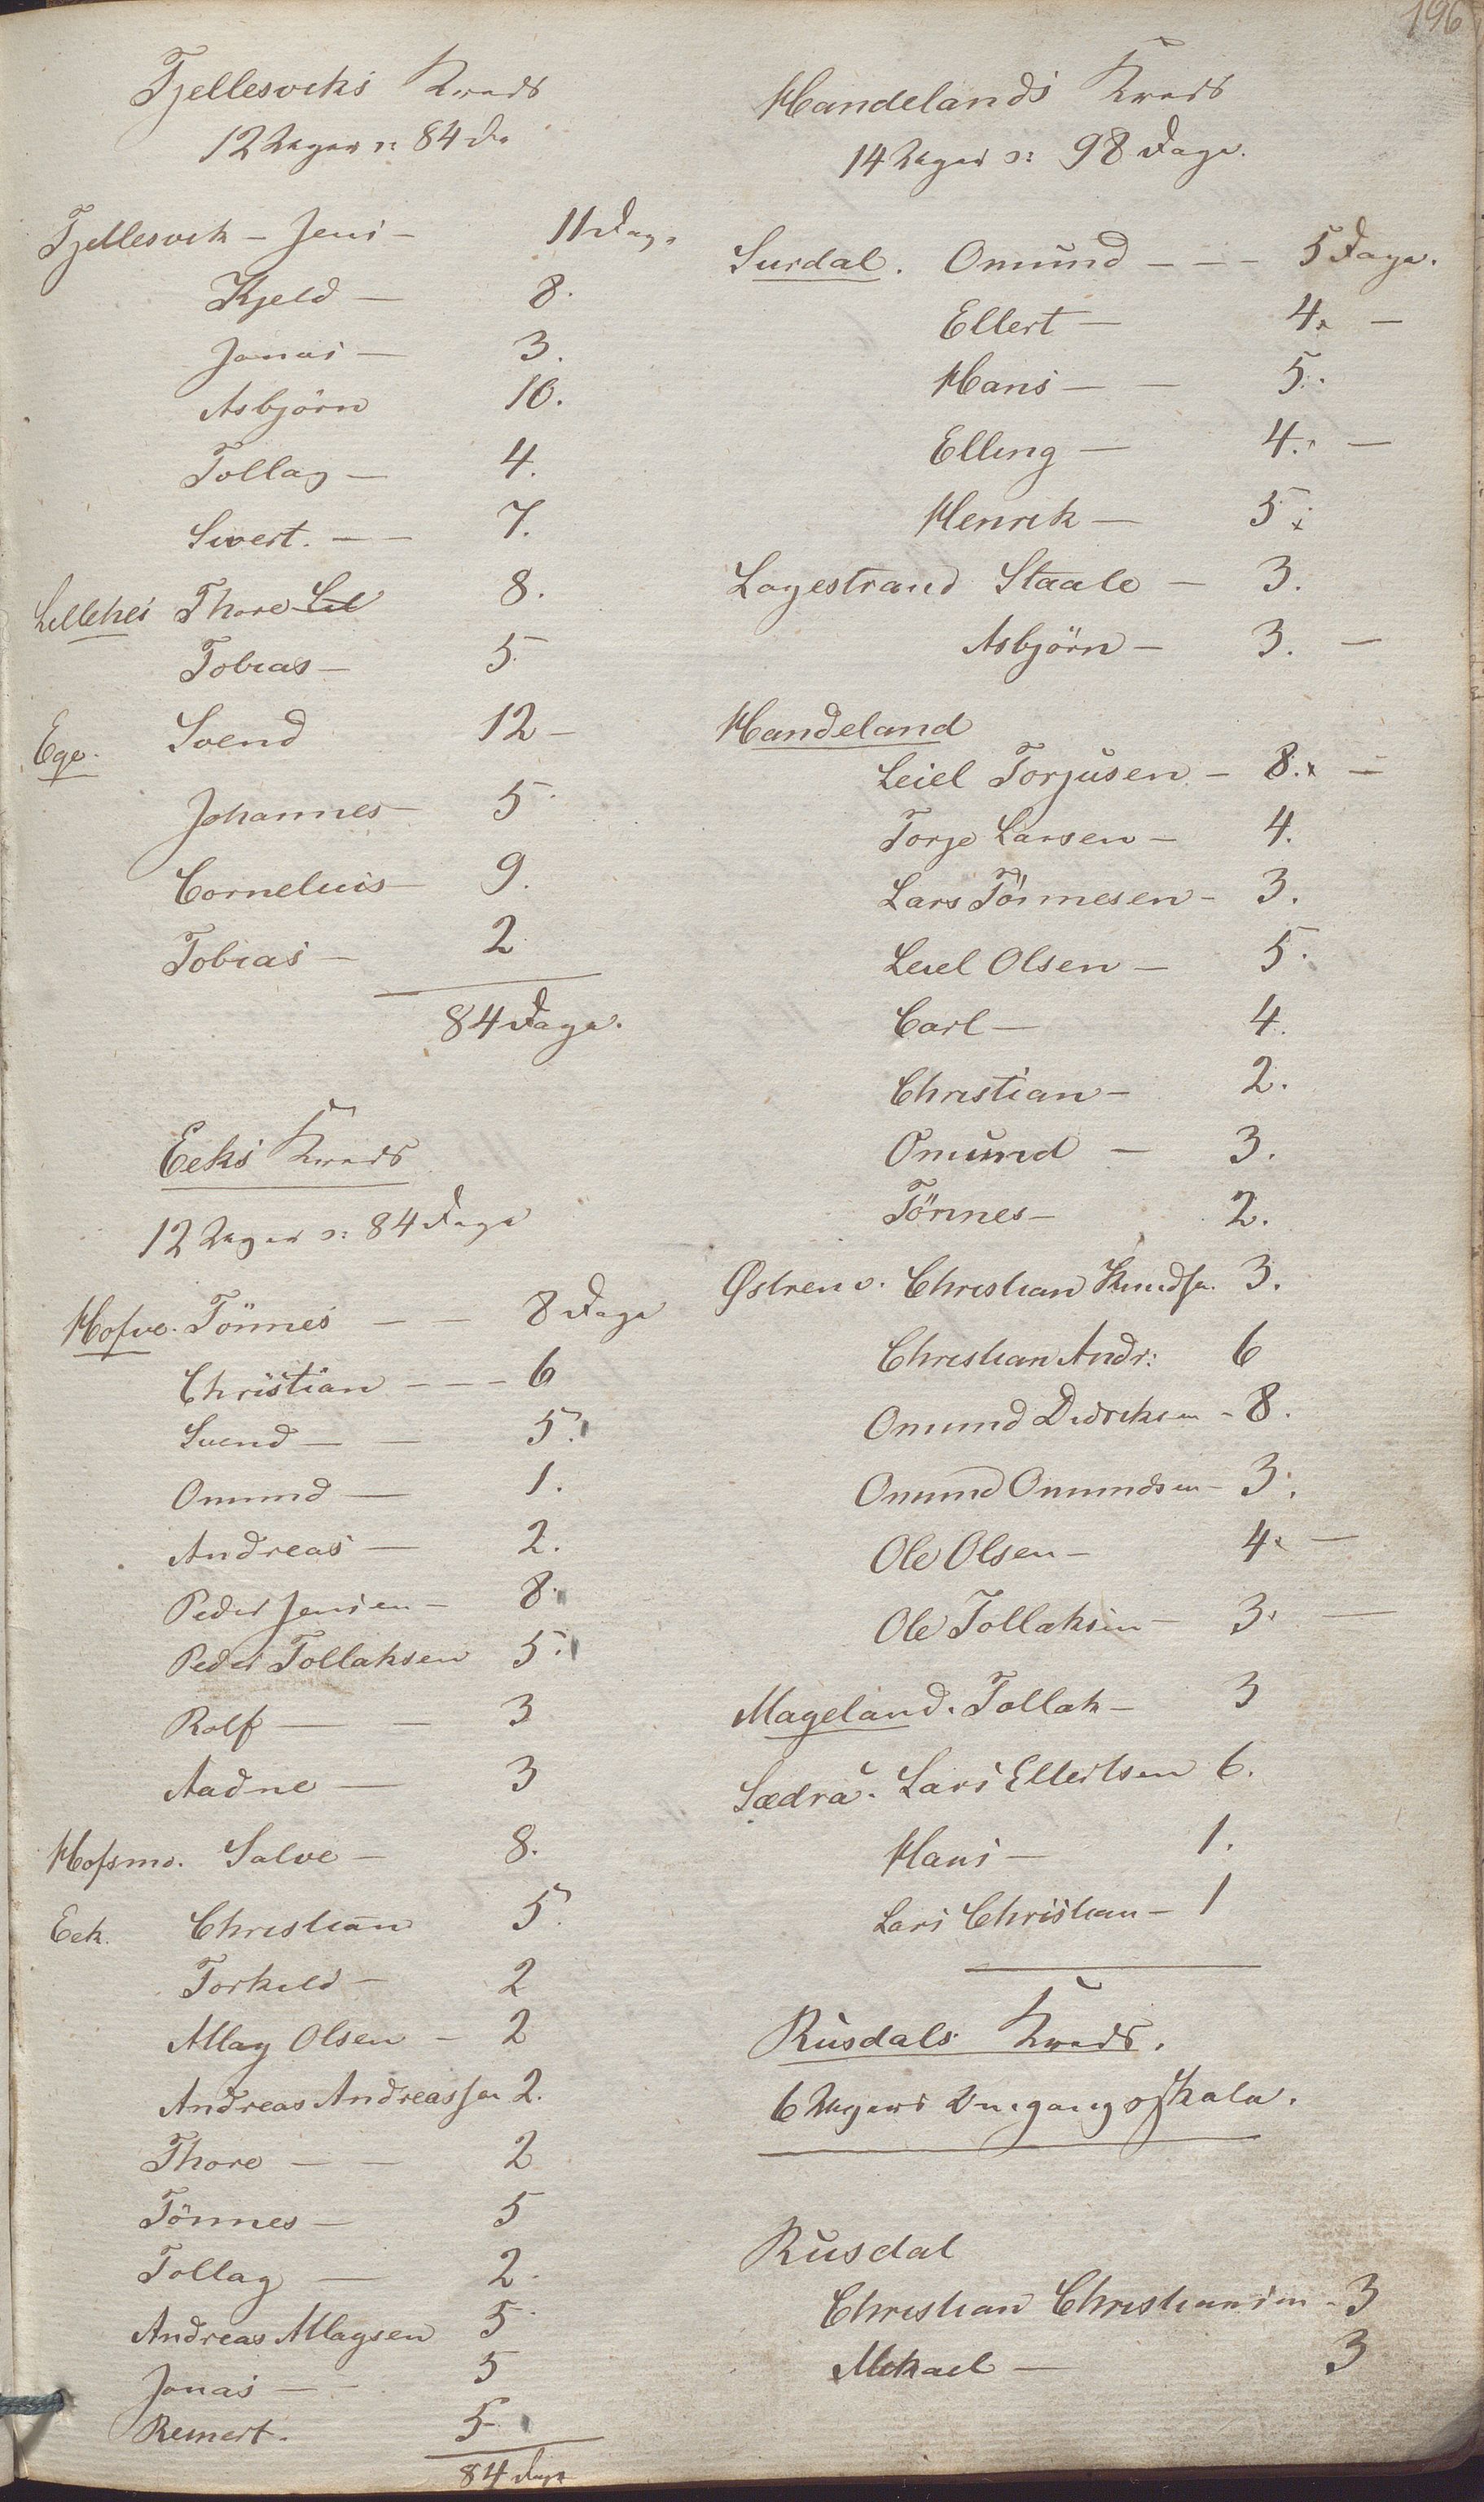 196
Fjellesviks Kreds
12 Uger ɔ: 84 Da
Fjellesvik – Jens – 11 Dage
Kjeld – 8.
Jonas – 3.
Asbjörn 10.
Tollag – 4.
Sivert. – – 7.
Lillehei Thore Lil 8.
Tobias – 5
Ege. Svend 12 –
Johannes – 5.
Cornelius – 9.
Tobias – 2
84 Dage.
Eeks Kreds
12 Uger ɔ: 84 Dage
Hofve. Tönnes – – 8 Dage
Christian – – – 6
Svend – – 5.
Omund – 1.
Andreas – 2.
Peder Jensen – 8.
Peder Tollaksen 5.
Rolf – – 3
Aadne – 3
Hofsmo. Salve – 8.
Eek. Christian 5.
Torkild – 2
Allag Olsen – 2
Andreas Andreassen 2.
Thore – – 2
Tönnes – 5
Tollag – 2.
Andreas Allagsen 5.
Jonas – – 5
Reinert. 5
84 Dage
Handelands Kreds
14 Uger ɔ: 98 Dage.
Surdal. Omund – – – 5 Dage.
Ellert – 4. –
Hans – – 5.
Elling – 4. –
Henrik – 5
Logestrand Staale – 3.
Asbjörn – 3. –
Handeland
Leiel Torjusen – 8. –
Torje Larsen – 4.
Lars Tönnesen – 3.
Leiel Olsen – 5.
Carl – 4.
Christian – 2.
Omund – 3.
Tönnes – 2.
Østrem. Christian Knudsen 3.
Christian Andr: 6
Omund Didriksen – 8.
Omund Omundsen – 3.
Ole Olsen – 4. –
Ole Tollaksen – 3. –
Mageland. Tollak – 3
Sædra. Lars Ellertsen 6.
Hans – 1.
Lars Christian – 1
Rusdals Kreds.
6 Ugers Omgangsskole.
Rusdal
Christian Christiansen – 3
Mikael – 3